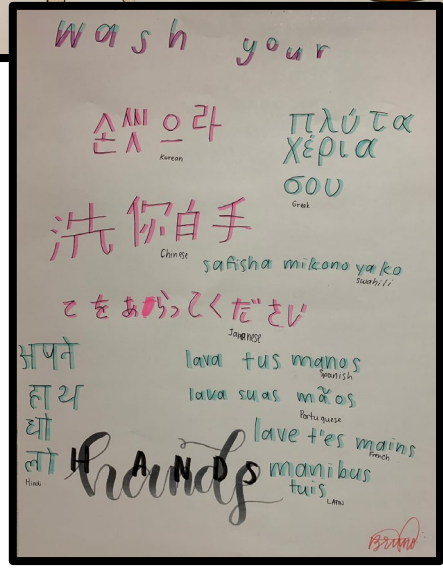 Wash your
손씻으라
Korean
πλύτα
χέρια
σου
Greek
洗你白手
Chinese
safisha mikono yako
swahili
てをあらってください
Japanese
अपने
हाथ
धो
लो
Hindi
lava tus manos
Spanish
lava suas mãos
Portuguese
lave t'es mains
French
HANDS
hands
manibus
tuis
LATIN
Bruno